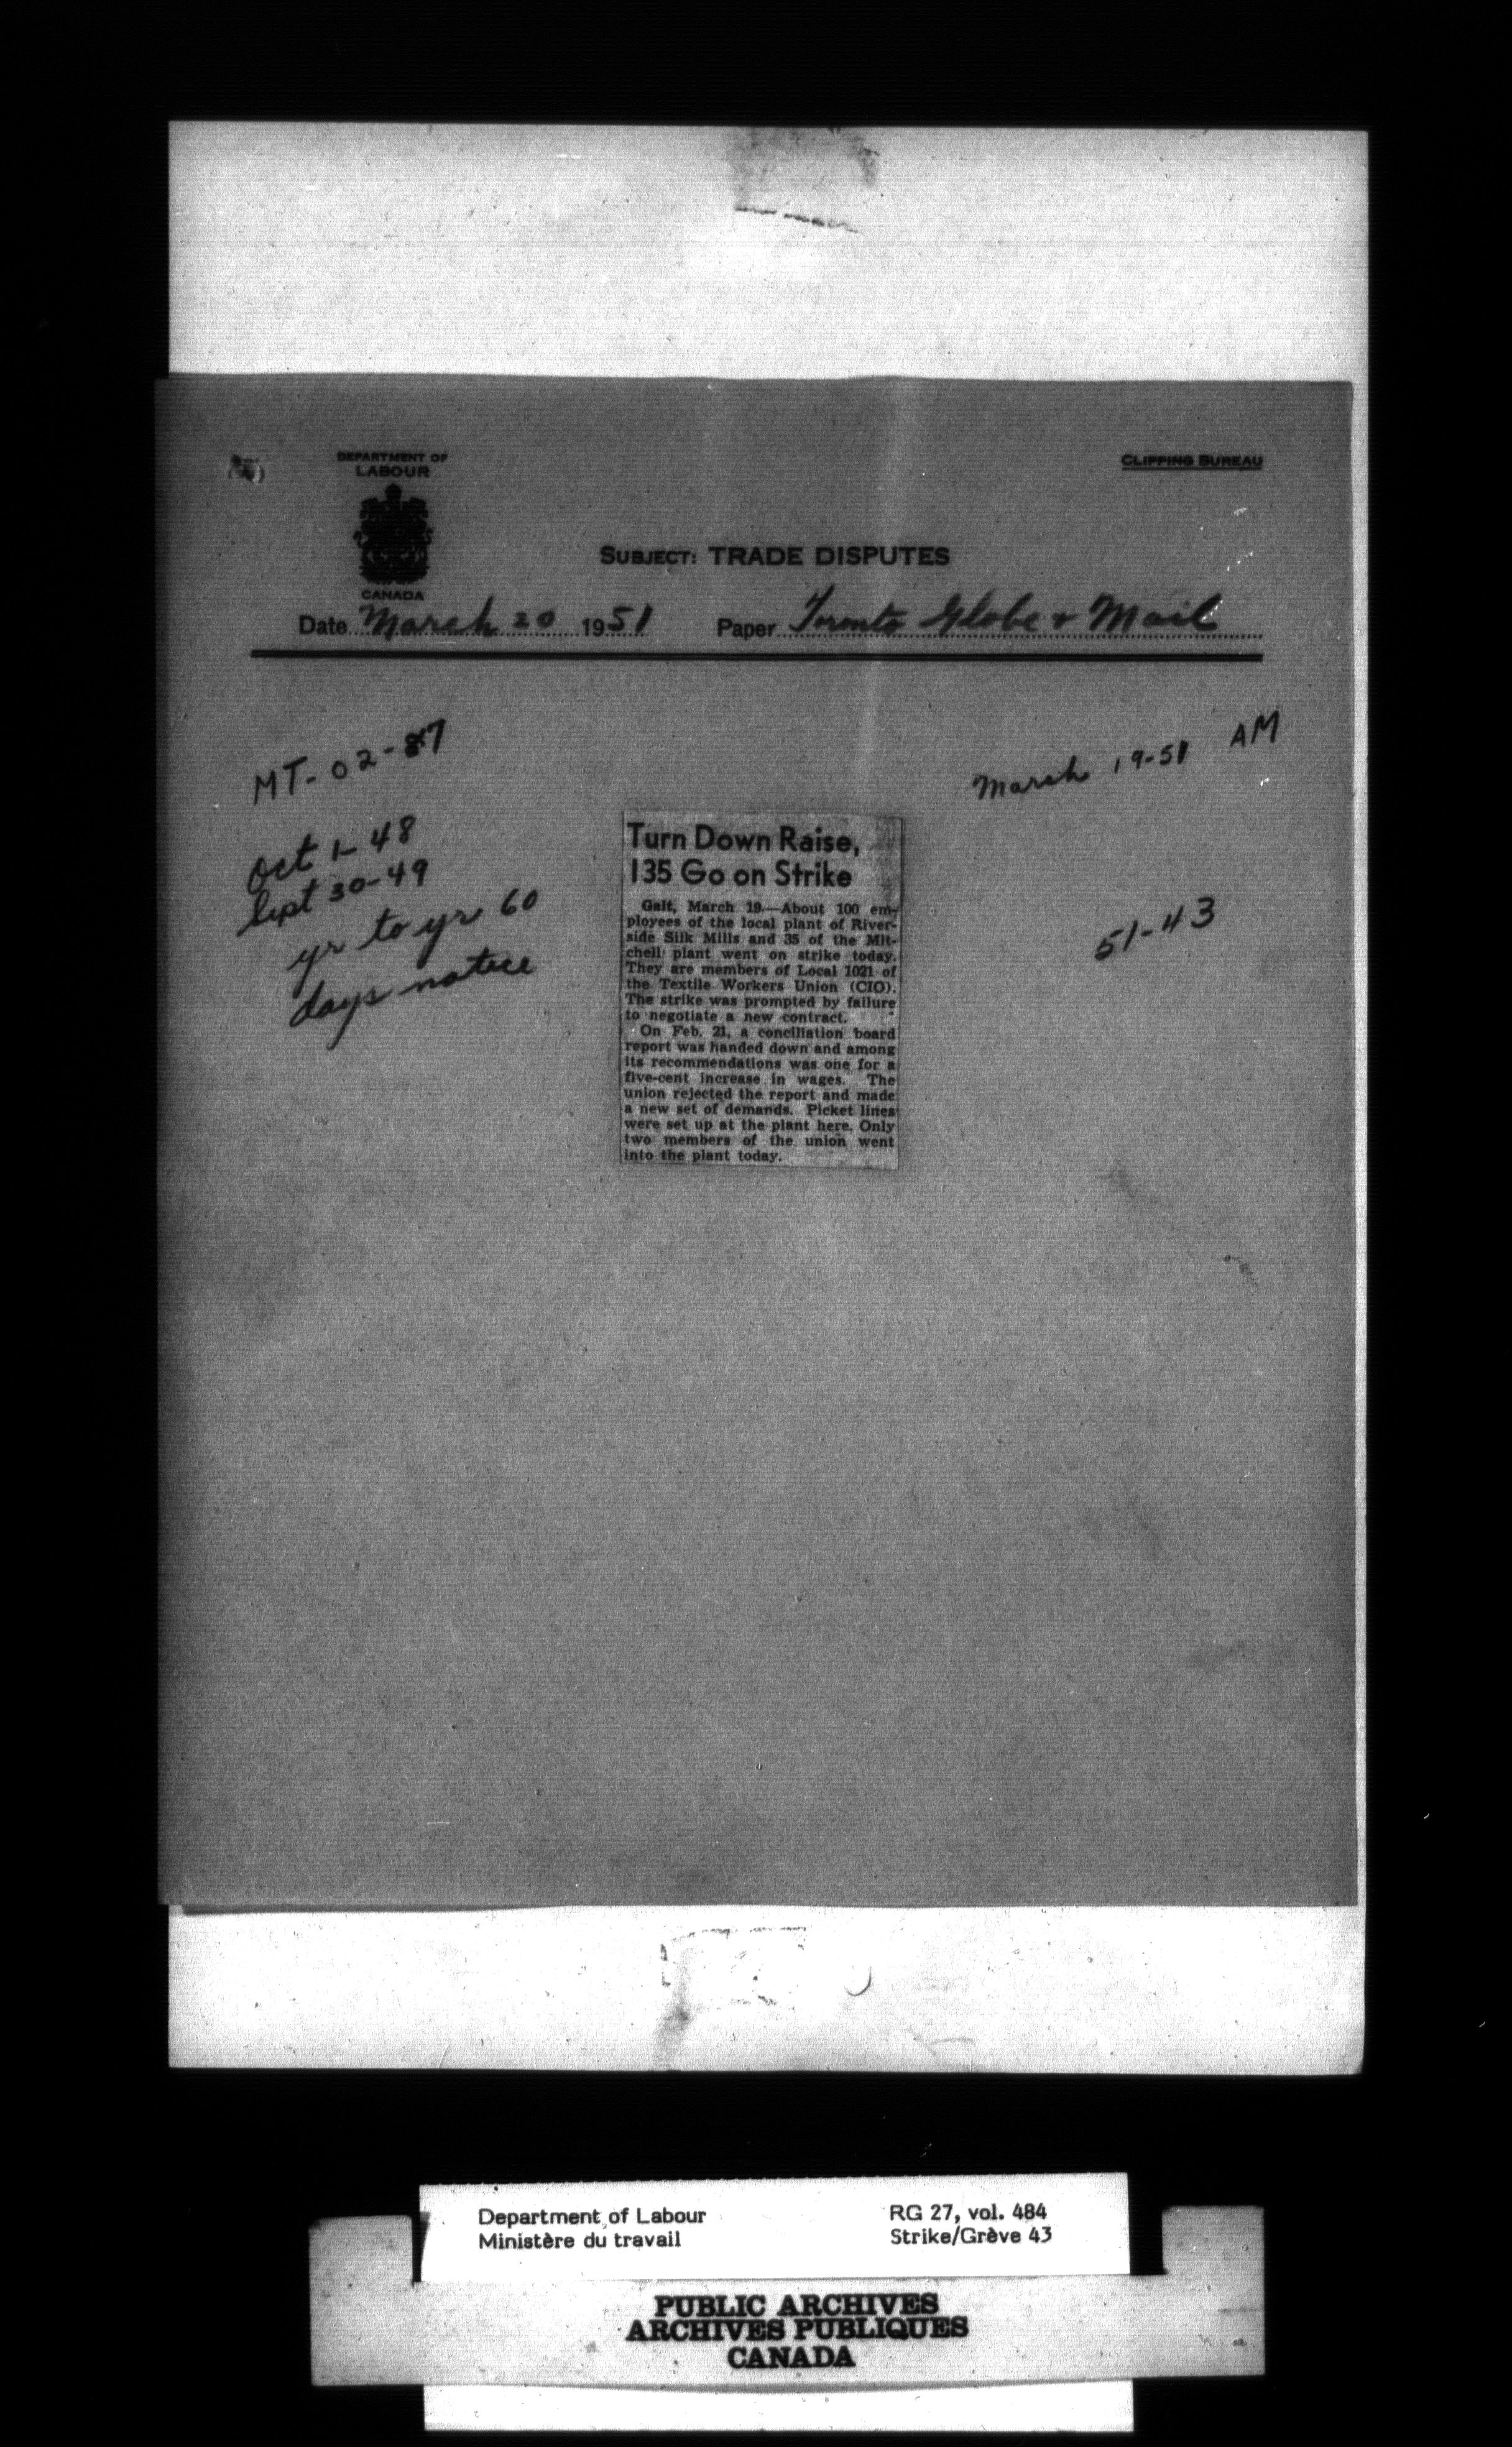 DEPARTMENT OF
LABOUR
CANADA
CLIPPING BUREAU
SUBJECT: TRADE DISPUTES
Date March 20 1951 Paper Toronto Globe & Mail
MT-02-87
March 19-51 AM
Oct 1-48
Sept 30-49
yr to yr 60
days notice
51-43
Turn Down Raise,
135 Go on Strike
Galt, March 19.—About 100 em-
ployees of the local plant of River-
side Silk Mills and 35 of the Mit-
chell plant went on strike today.
They are members of Local 1021 of
the Textile Workers Union (CIO).
The strike was prompted by failure
to negotiate a new contract.
On Feb. 21, a conciliation board
report was handed down and among
its recommendations was one for a
five-cent increase in wages. The
union rejected the report and made
a new set of demands. Picket lines
were set up at the plant here. Only
two members of the union went
into the plant today.
Department of Labour
Ministère du travail
RG 27, vol. 484
Strike/Grève 43
PUBLIC ARCHIVES
ARCHIVES PUBLIQUES
CANADA